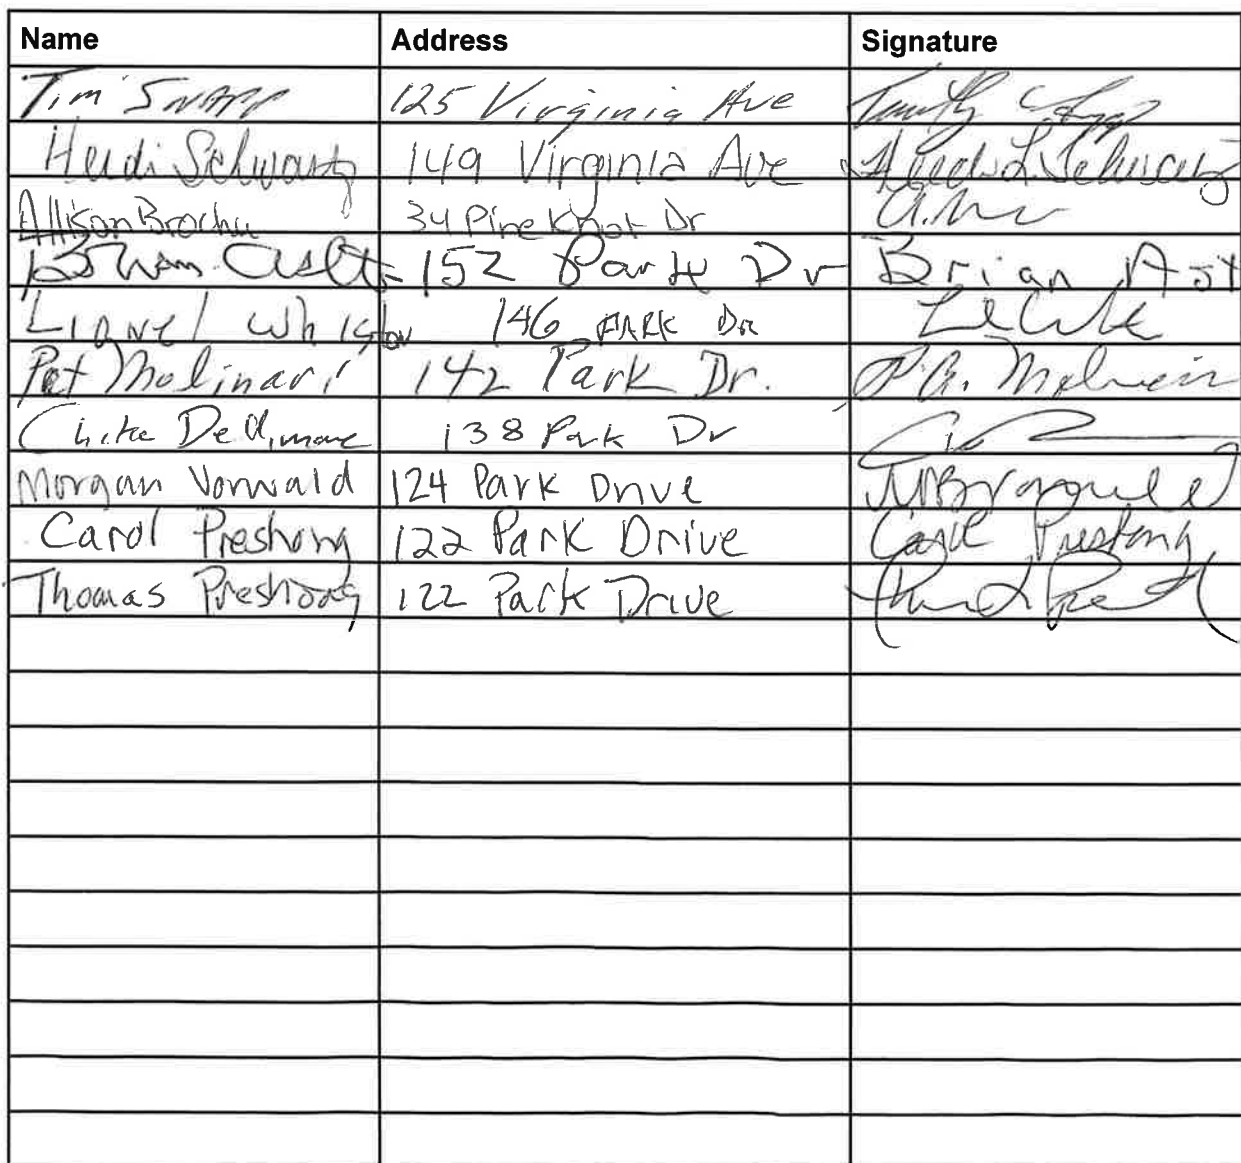 Name Address Signature
Tim Snapp 125 Virginia Ave
Heidi Schwartz 149 Virginia Ave Heidi L Schwartz
Allison Brochu 34 Pine Knot Dr
152 Park Dr Brian Ast
Lionel Whiston 146 PARK DR
Pat Molinari 142 Park Dr. P.A. Molinari
138 Park Dr
Morgan Vorwald 124 Park Drive
Carol Preshong 122 Park Drive Carol Preshong
Thomas Preshong 122 Park Drive